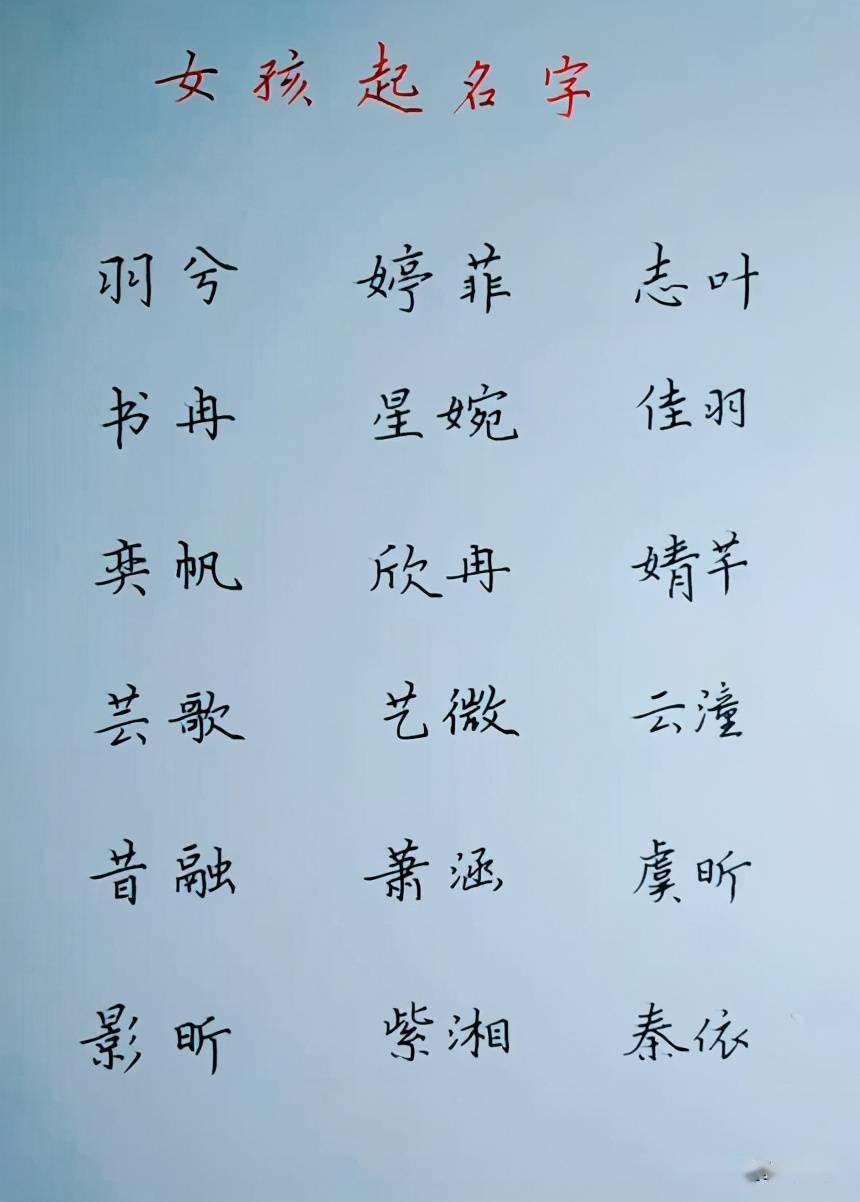 女孩起名字
羽兮 婷菲 志叶
书冉 星婉 佳羽
奕帆 欣冉 婧芊
芸歌 艺微 云潼
昔融 萧涵 虞昕
影昕 紫湘 秦依